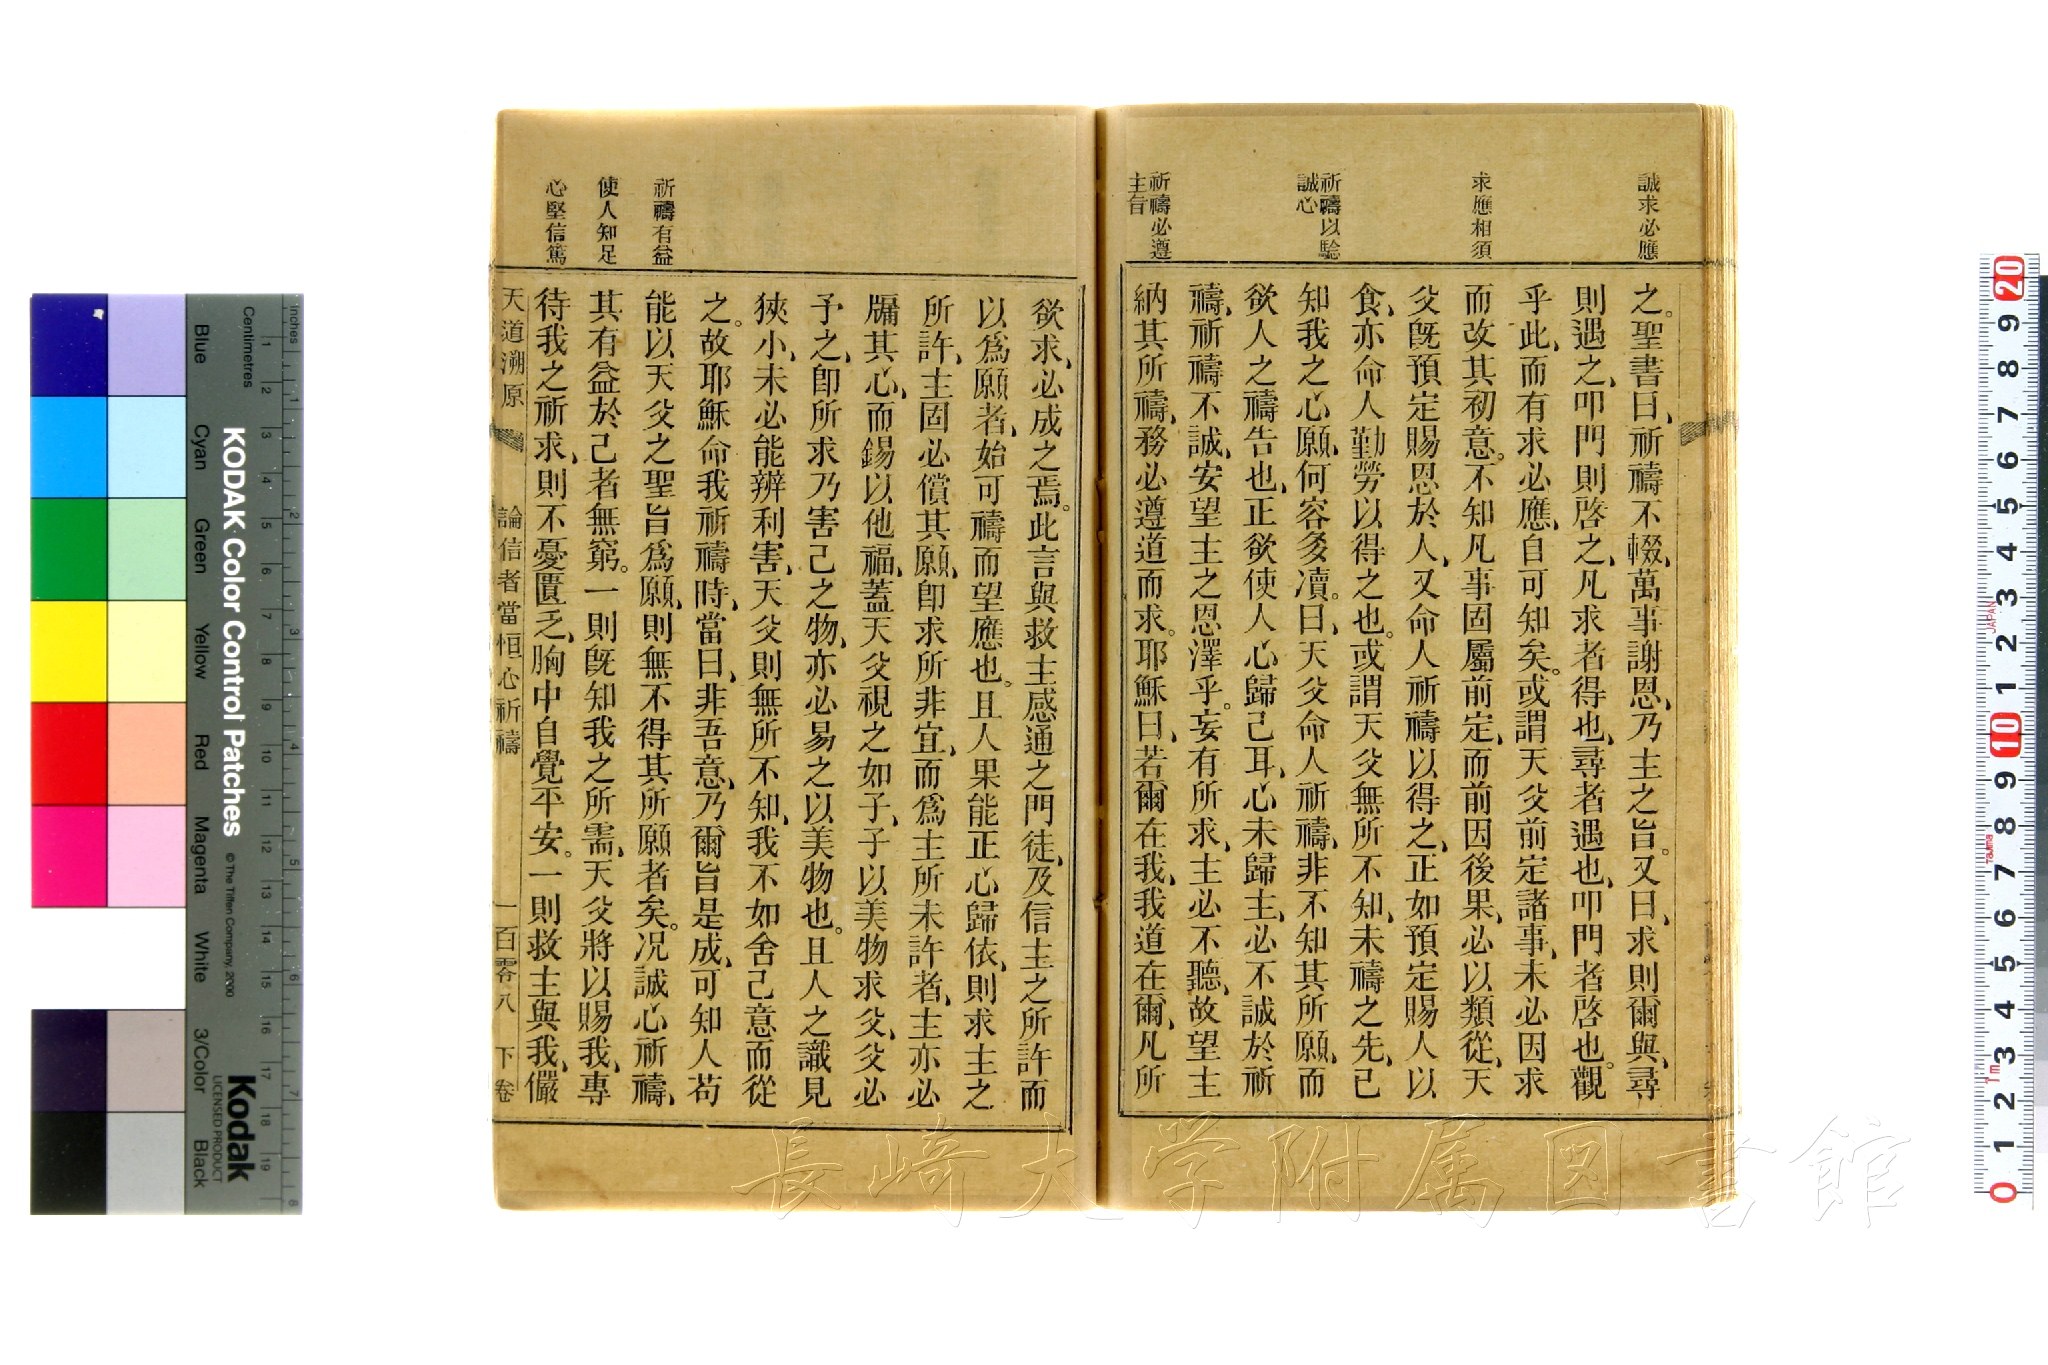 誠求必應
求應相須
祈禱以驗
誠心
祈禱必遵
主旨
之。聖書曰、祈禱不輟、萬事謝恩、乃主之旨。又曰、求則爾與、尋
則遇之、叩門則啓之、凡求者得也、尋者遇也、叩門者啓也。觀
乎此、而有求必應、自可知矣。或謂天父前定諸事、未必因求
而改其初意。不知凡事固屬前定、而前因後果、必以類從、天
父旣預定賜恩於人、又命人祈禱以得之、正如預定賜人以
食、亦命人勤勞以得之也。或謂天父無所不知、未禱之先、已
知我之心願、何容多瀆。曰、天父命人祈禱、非不知其所願、而
欲人之禱告也、正欲使人心歸己耳、心未歸主、必不誠於祈
禱、祈禱不誠、安望主之恩澤乎。妄有所求、主必不聽、故望主
納其所禱、務必遵道而求。耶穌曰、若爾在我、我道在爾、凡所
祈禱有益
使人知足
心堅信篤
欲求、必成之焉。此言與救主感通之門徒、及信主之所許而
以爲願者、始可禱而望應也。且人果能正心歸依、則求主之
所許、主固必償其願、卽求所非宜、而爲主所未許者、主亦必
牖其心、而錫以他福、蓋天父視之如子、子以美物求父、父必
予之、卽所求乃害己之物、亦必易之以美物也。且人之識見
狹小、未必能辨利害、天父則無所不知、我不如舍己意而從
之。故耶穌命我祈禱時、當曰、非吾意、乃爾旨是成、可知人苟
能以天父之聖旨爲願、則無不得其所願者矣。况誠心祈禱、
其有益於己者無窮。一則旣知我之所需、天父將以賜我、專
待我之祈求、則不憂匱乏、胸中自覺平安。一則救主與我、儼
天道溯原 論信者當恒心祈禱 一百零八 下卷
KODAK Color Control Patches
© The Tiffen Company, 2000
Kodak
LICENSED PRODUCT
Inches 1 2 3 4 5 6 7 8
Centimetres 1 2 3 4 5 6 7 8 9 10 11 12 13 14 15 16 17 18 19
Blue Cyan Green Yellow Red Magenta White 3/Color Black
20 9 8 7 6 5 4 3 2 1 10 9 8 7 6 5 4 3 2 1 0
JAPAN
Tajima
長崎大学附属図書館